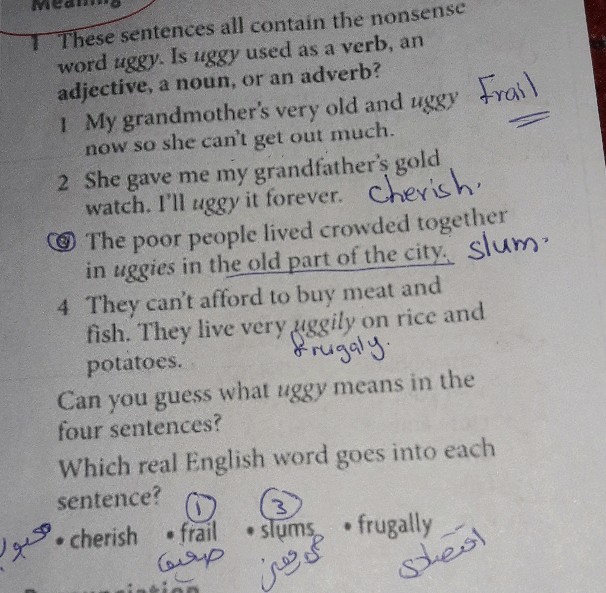 Meaning
1 These sentences all contain the nonsense
word uggy. Is uggy used as a verb, an
adjective, a noun, or an adverb?
1 My grandmother's very old and uggy Frail
now so she can't get out much.
2 She gave me my grandfather's gold
watch. I'll uggy it forever. Cherish.
3 The poor people lived crowded together
in uggies in the old part of the city. slum.
4 They can't afford to buy meat and
fish. They live very uggily on rice and
frugaly.
potatoes.
Can you guess what uggy means in the
four sentences?
Which real English word goes into each
sentence? 1 3
• cherish • frail • slums • frugally
ضعیف